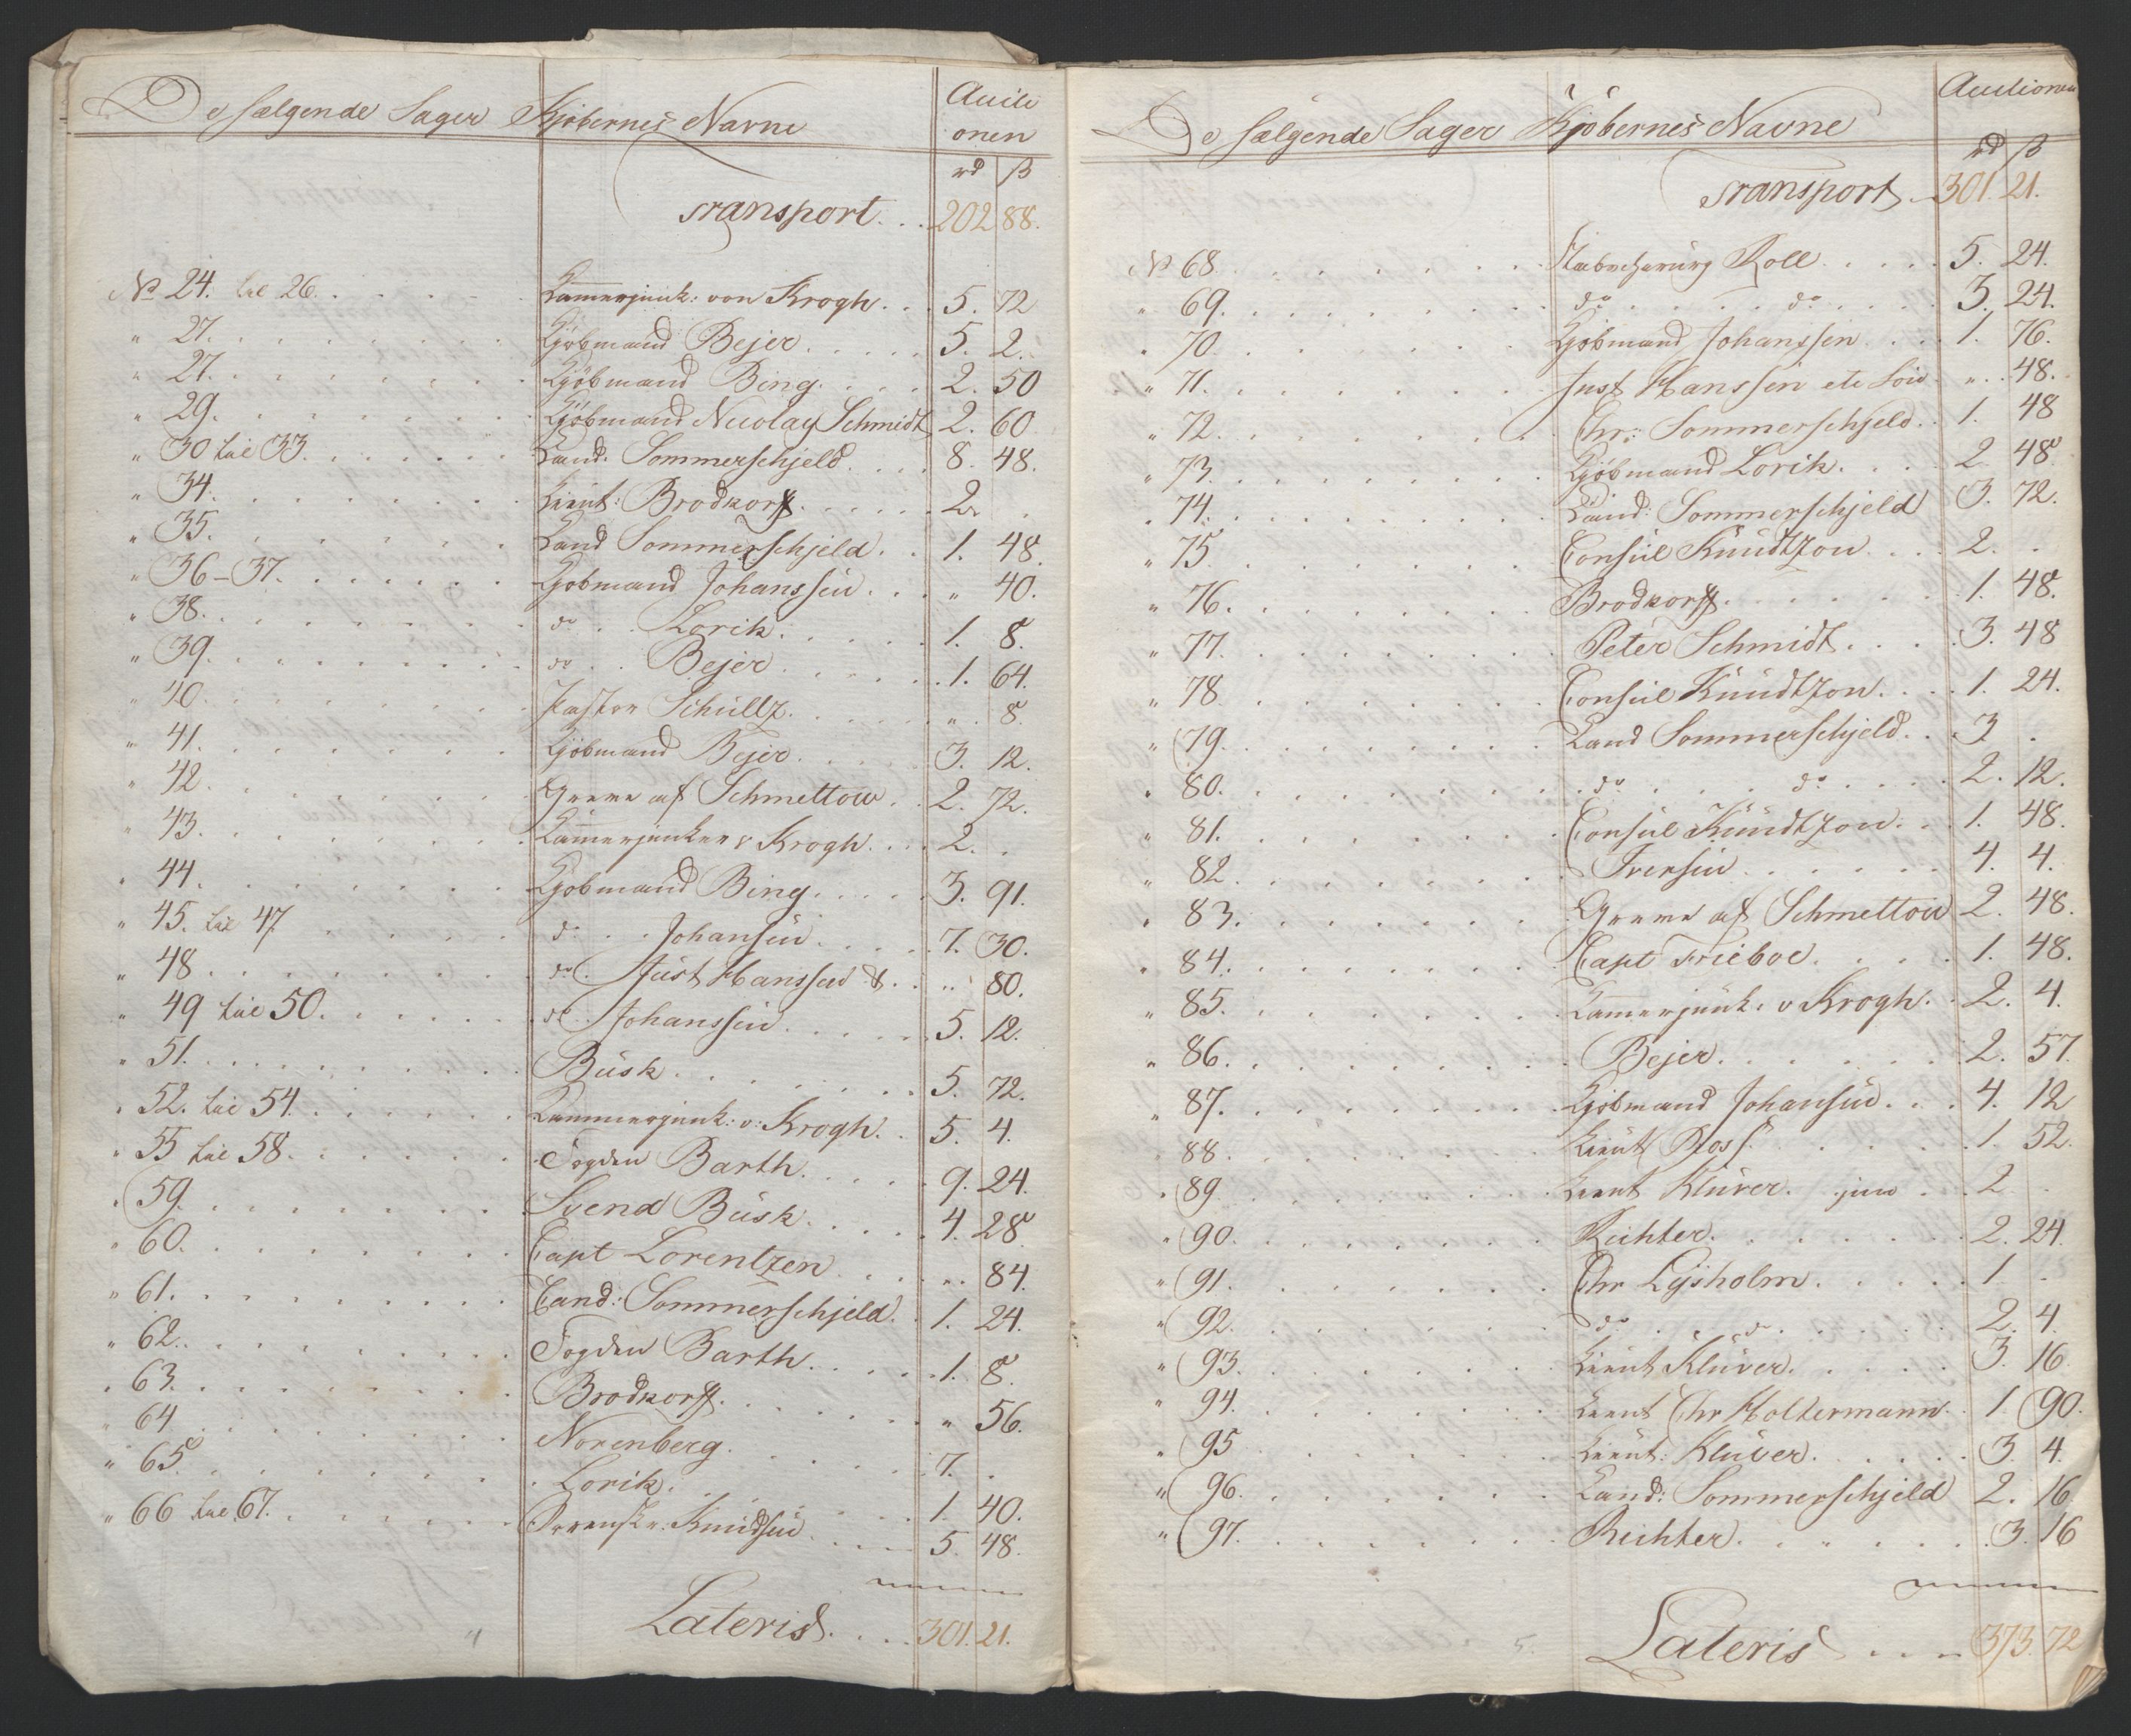 De sælgende Sager Kjøbernes Navne Aucti
onen
rd ß
Transport... 202 88.
No 24. til 26. Kammerjunk: von Krogh... 5. 72
" 27. Kjøbmand Bejer..... 5. 2.
" 27. Kjøbmand Bing.... 2. 50
" 29. Kjøbmand Nicolay Schmidt 2. 60
" 30 til 33. Cand. Sommerschjeld.... 8. 48.
" 34. Lieut: Brodkorff..... 2. .
" 35. Cand Sommerschjeld.. 1. 48.
" 36-37. Kjøbmand Johanssen... " 40.
" 38. do.. Lorik..... 1. 8.
" 39. do.. Bejer..... 1. 64.
" 40. Pastor Schultz..... " 8.
" 41. Kjøbmand Bejer..... 3. 12.
" 42. Greve af Schmettow.. 2. 72.
" 43. Kammerjunker v Krogh... 2. .
" 44. Kjøbmand Bing.... 3. 91.
" 45. til 47. do... Johansen.... 7. 30.
" 48. do. Just Hanssen &.. " 80.
" 49 til 50. do. Johanssen.... 5. 12.
" 51. Busk....... 5. 72.
" 52. til 54. Kammerjunk: v: Krogh.. 5. 4.
" 55 til 58. Fogden Barth..... 9. 24.
" 59. Svend Busk.... 4. 28
" 60. Capt Lorentzen... " 84.
" 61. Cand: Sommerschjeld. 1. 24.
" 62. Fogden Barth..... 1. 8.
" 63. Brodkorff...... " 56.
" 64 Norenberg..... 7. .
" 65. Lorik..... 1. 40.
" 66 til 67. Knudsen.... 5. 48.
Lateris.... 301. 21.
De sælgende Sager Kjøbernes Navne Auctionen
rd ß
Transport. 301. 21.
No 68. Roll..... 5. 24.
" 69. do..... do.... 3. 24.
" 70. Kjøbmand Johanssen... 1. 76.
" 71. Just Hanssen " 48.
" 72. Chr: Sommerschjeld.. 1. 48
" 73. Kjøbmand Lorik.... 2 48
" 74. Cand: Sommerschjeld 3. 72.
" 75. Consul Knudtzon.... 2. .
" 76. Brodkorff...... 1. 48.
" 77. Peter Schmidt.... 3. 48
" 78. Consul Knudtzon.... 1. 24.
" 79. Cand Sommerschjeld.. 3 .
" 80. do..... do.... 2. 12.
" 81. Consul Knudtzon... 1. 48.
" 82. Iversen..... 4. 4.
" 83. Greve af Schmettow 2. 48.
" 84. Capt Trieboe.... 1. 48.
" 85. Kammerjunk: v Krogh.. 2. 4.
" 86. Bejer...... 2. 57.
" 87. Kjøbmand Johansen... 4. 12
" 88. Lieut Ross..... 1. 52.
" 89. Lieut Klüver. jun.. 2 .
" 90. Richter...... 2. 24.
" 91. Chr Lysholm..... 1 .
" 92. do... do.... 2. 4.
" 93. Lieut Klüver..... 3. 16.
" 94. Lieut Chr Holtermann. 1. 90.
" 95 Lieut: Klüver..... 3. 4.
" 96. Cand: Sommerschjeld 2. 16
" 97. Richter...... 3. 16
Lateris.... 373. 72